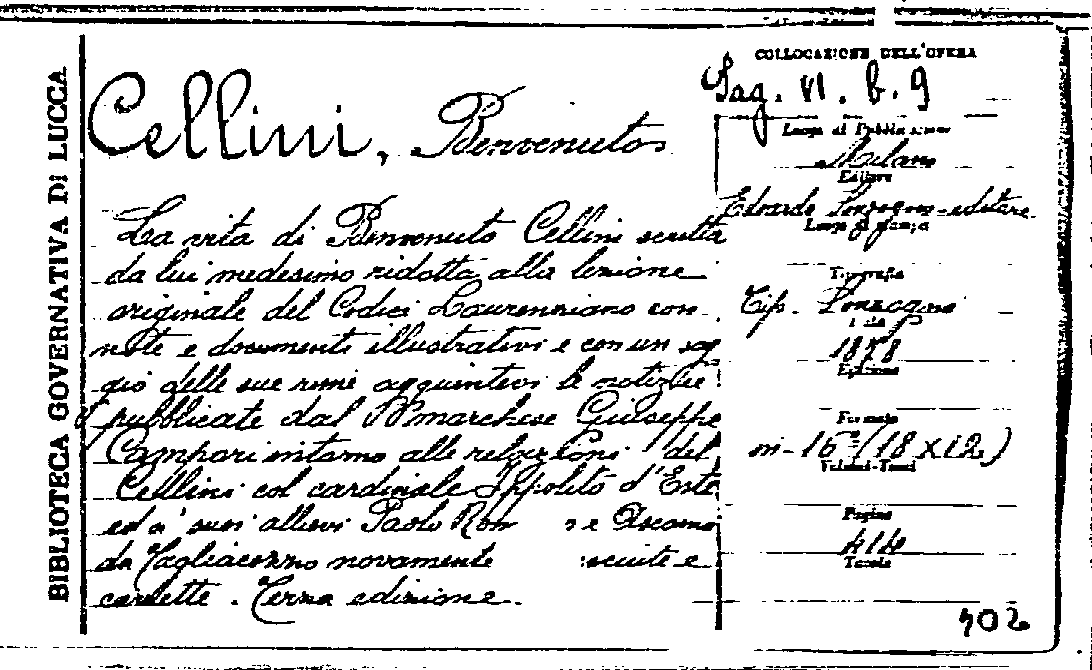 BIBLIOTECA GOVERNATIVA DI LUCCA
Cellini, Benvenuto
La vita di Benvenuto Cellini scritta
da lui medesimo ridotta alla lezione
originale del Codici Laurenziano con
note e documenti illustrativi e con un sag
gio delle sue rime aggiuntevi le notizie
pubblicate dal marchese Giuseppe
Campori intorno alle relazioni del
Cellini col cardinale Ippolito d'Este
ed a' suoi allievi Paolo Rom e Ascanio
da Tagliacozzo novamente e
corrette. Terza edizione.
COLLOCAZIONE DELL'OPERA
Sag. VI. b. 9
Luogo di Pubblicazione
Milano
Editore
Edoardo Sonzogno-editore
Luogo di stampa
Tipografia
Tip. Sonzogno
1878
Edizione
Formato
in-16° (18 x 12)
Volumi-Tomi
Pagine
414
Tavole
402